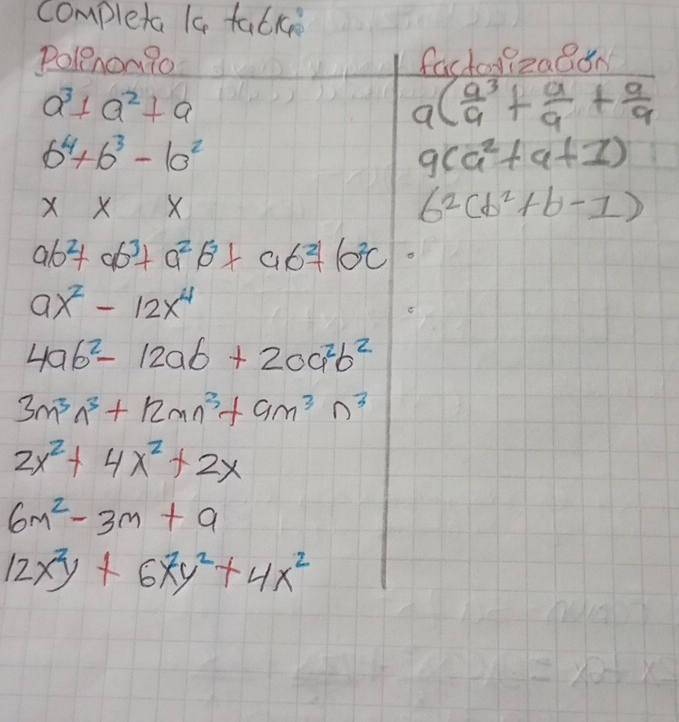 Completa la tabla:
Polinomio factorización
a³ + a² + a a(a³/a + a/a + a/a
b⁴ + b³ - b² a(a² + a + 1)
x x x b²(b² + b - 1)
ab² + ab³ + a²b² + ab² + b²c .
ax² - 12x⁴ .
4ab² - 12ab + 20a²b²
3m³n³ + 12mn³ + 9m³ n³
2x² + 4x² + 2x
6m² - 3m + 9
12x²y + 6x²y² + 4x²